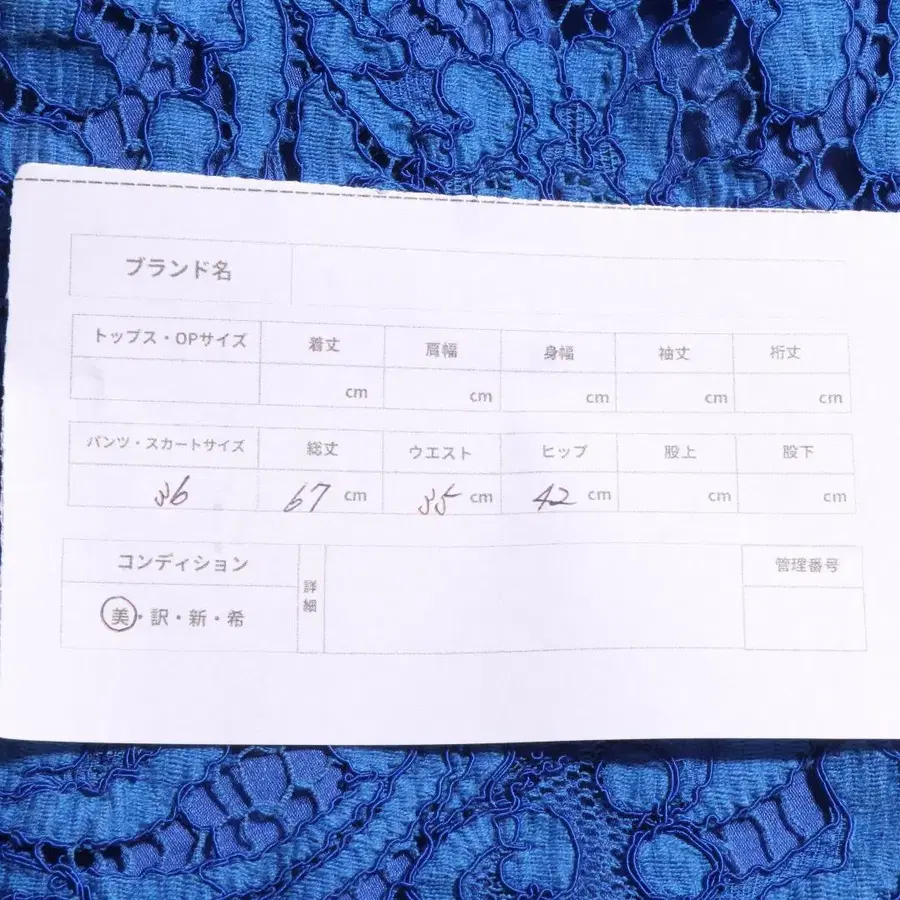 ブランド名
トップス・OPサイズ 着丈 肩幅 身幅 袖丈 裄丈
cm cm cm cm cm
パンツ・スカートサイズ 総丈 ウエスト ヒップ 股上 股下
36 67 cm 35 cm 42 cm cm cm
コンディション 詳細 管理番号
美・訳・新・希